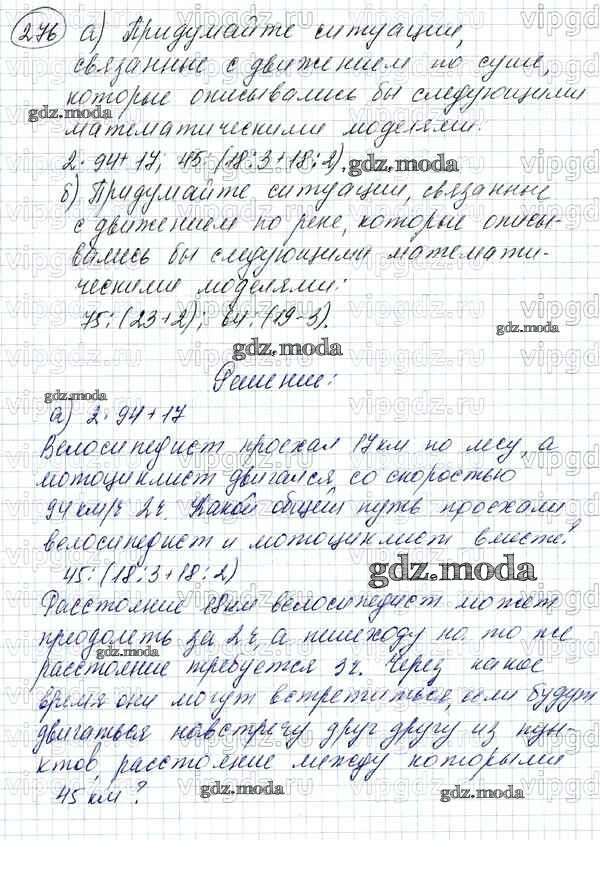 276 а) Придумайте ситуации,
связанные с движением по суше,
которые описывались бы следующими
gdz.moda
математическими моделями:
2·94+17; 45:(18:3+18:2).
gdz.moda
б) Придумайте ситуации, связанные
с движением по реке, которые описы-
вались бы следующими математи-
ческими моделями:
75:(23+2); 64:(19-3).
gdz.moda
gdz.moda
Решение:
gdz.moda
а) 2·94+17
Велосипедист проехал 17км по лесу, а
мотоциклист двигался со скоростью
94км/ч 2ч. Какой общий путь проехали
велосипедист и мотоциклист вместе?
45:(18:3+18:2)
gdz.moda
Расстояние 18км велосипедист может
преодолеть за 2ч, а пешеходу на то же
gdz.moda
расстояние требуется 3ч. Через какое
время они могут встретиться, если будут
двигаться навстречу друг другу из пун-
ктов, расстояние между которыми
45км?
gdz.moda
gdz.moda